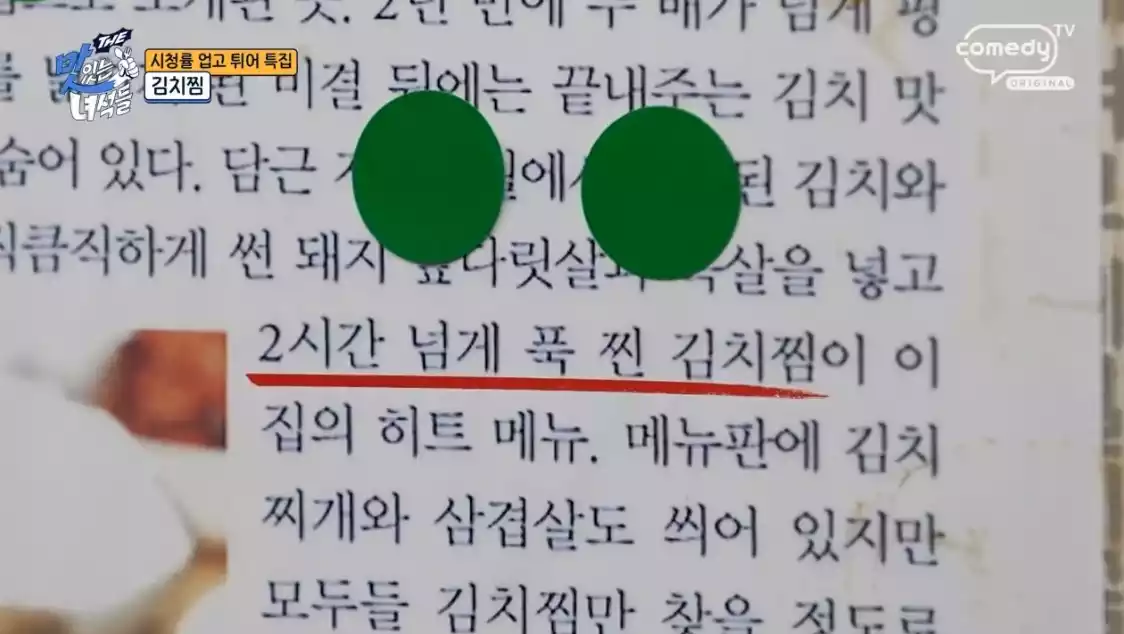 THE 맛있는 녀석들
시청률 업고 튀어 특집
김치찜
comedy TV
ORIGINAL
2년 만에 두 배가 넘게
미결 뒤에는 끝내주는 김치 맛
숨어 있다. 담근 된 김치와
큼직하게 썬 돼지 살을 넣고
2시간 넘게 푹 찐 김치찜이 이
집의 히트 메뉴. 메뉴판에 김치
찌개와 삼겹살도 씌어 있지만
모두들 김치찜만 찾을 정도로